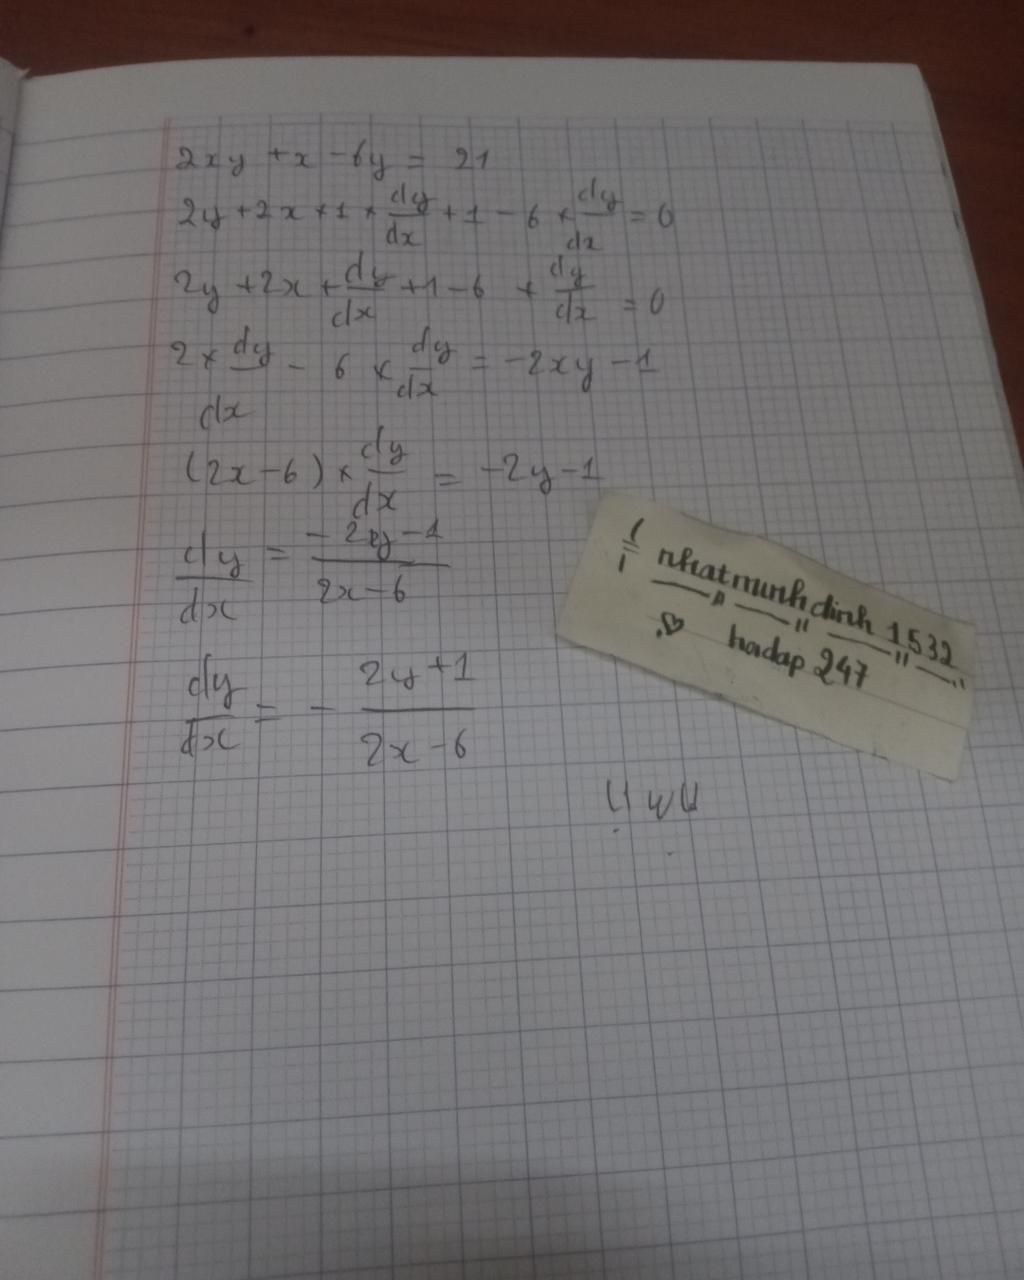 2xy + x - 6y = 21
2y + 2x × 1 × dy/dx + 1 - 6 × dy/dx = 0
2y + 2x + dy/dx + 1 - 6 + dy/dx = 0
2 × dy/dx - 6 × dy/dx = -2xy - 1
(2x - 6) × dy/dx = -2y - 1
dy/dx = (-2y - 1)/(2x - 6)
dy/dx = - (2y + 1)/(2x - 6)
nhatminhdinh 1532
hoidap 247